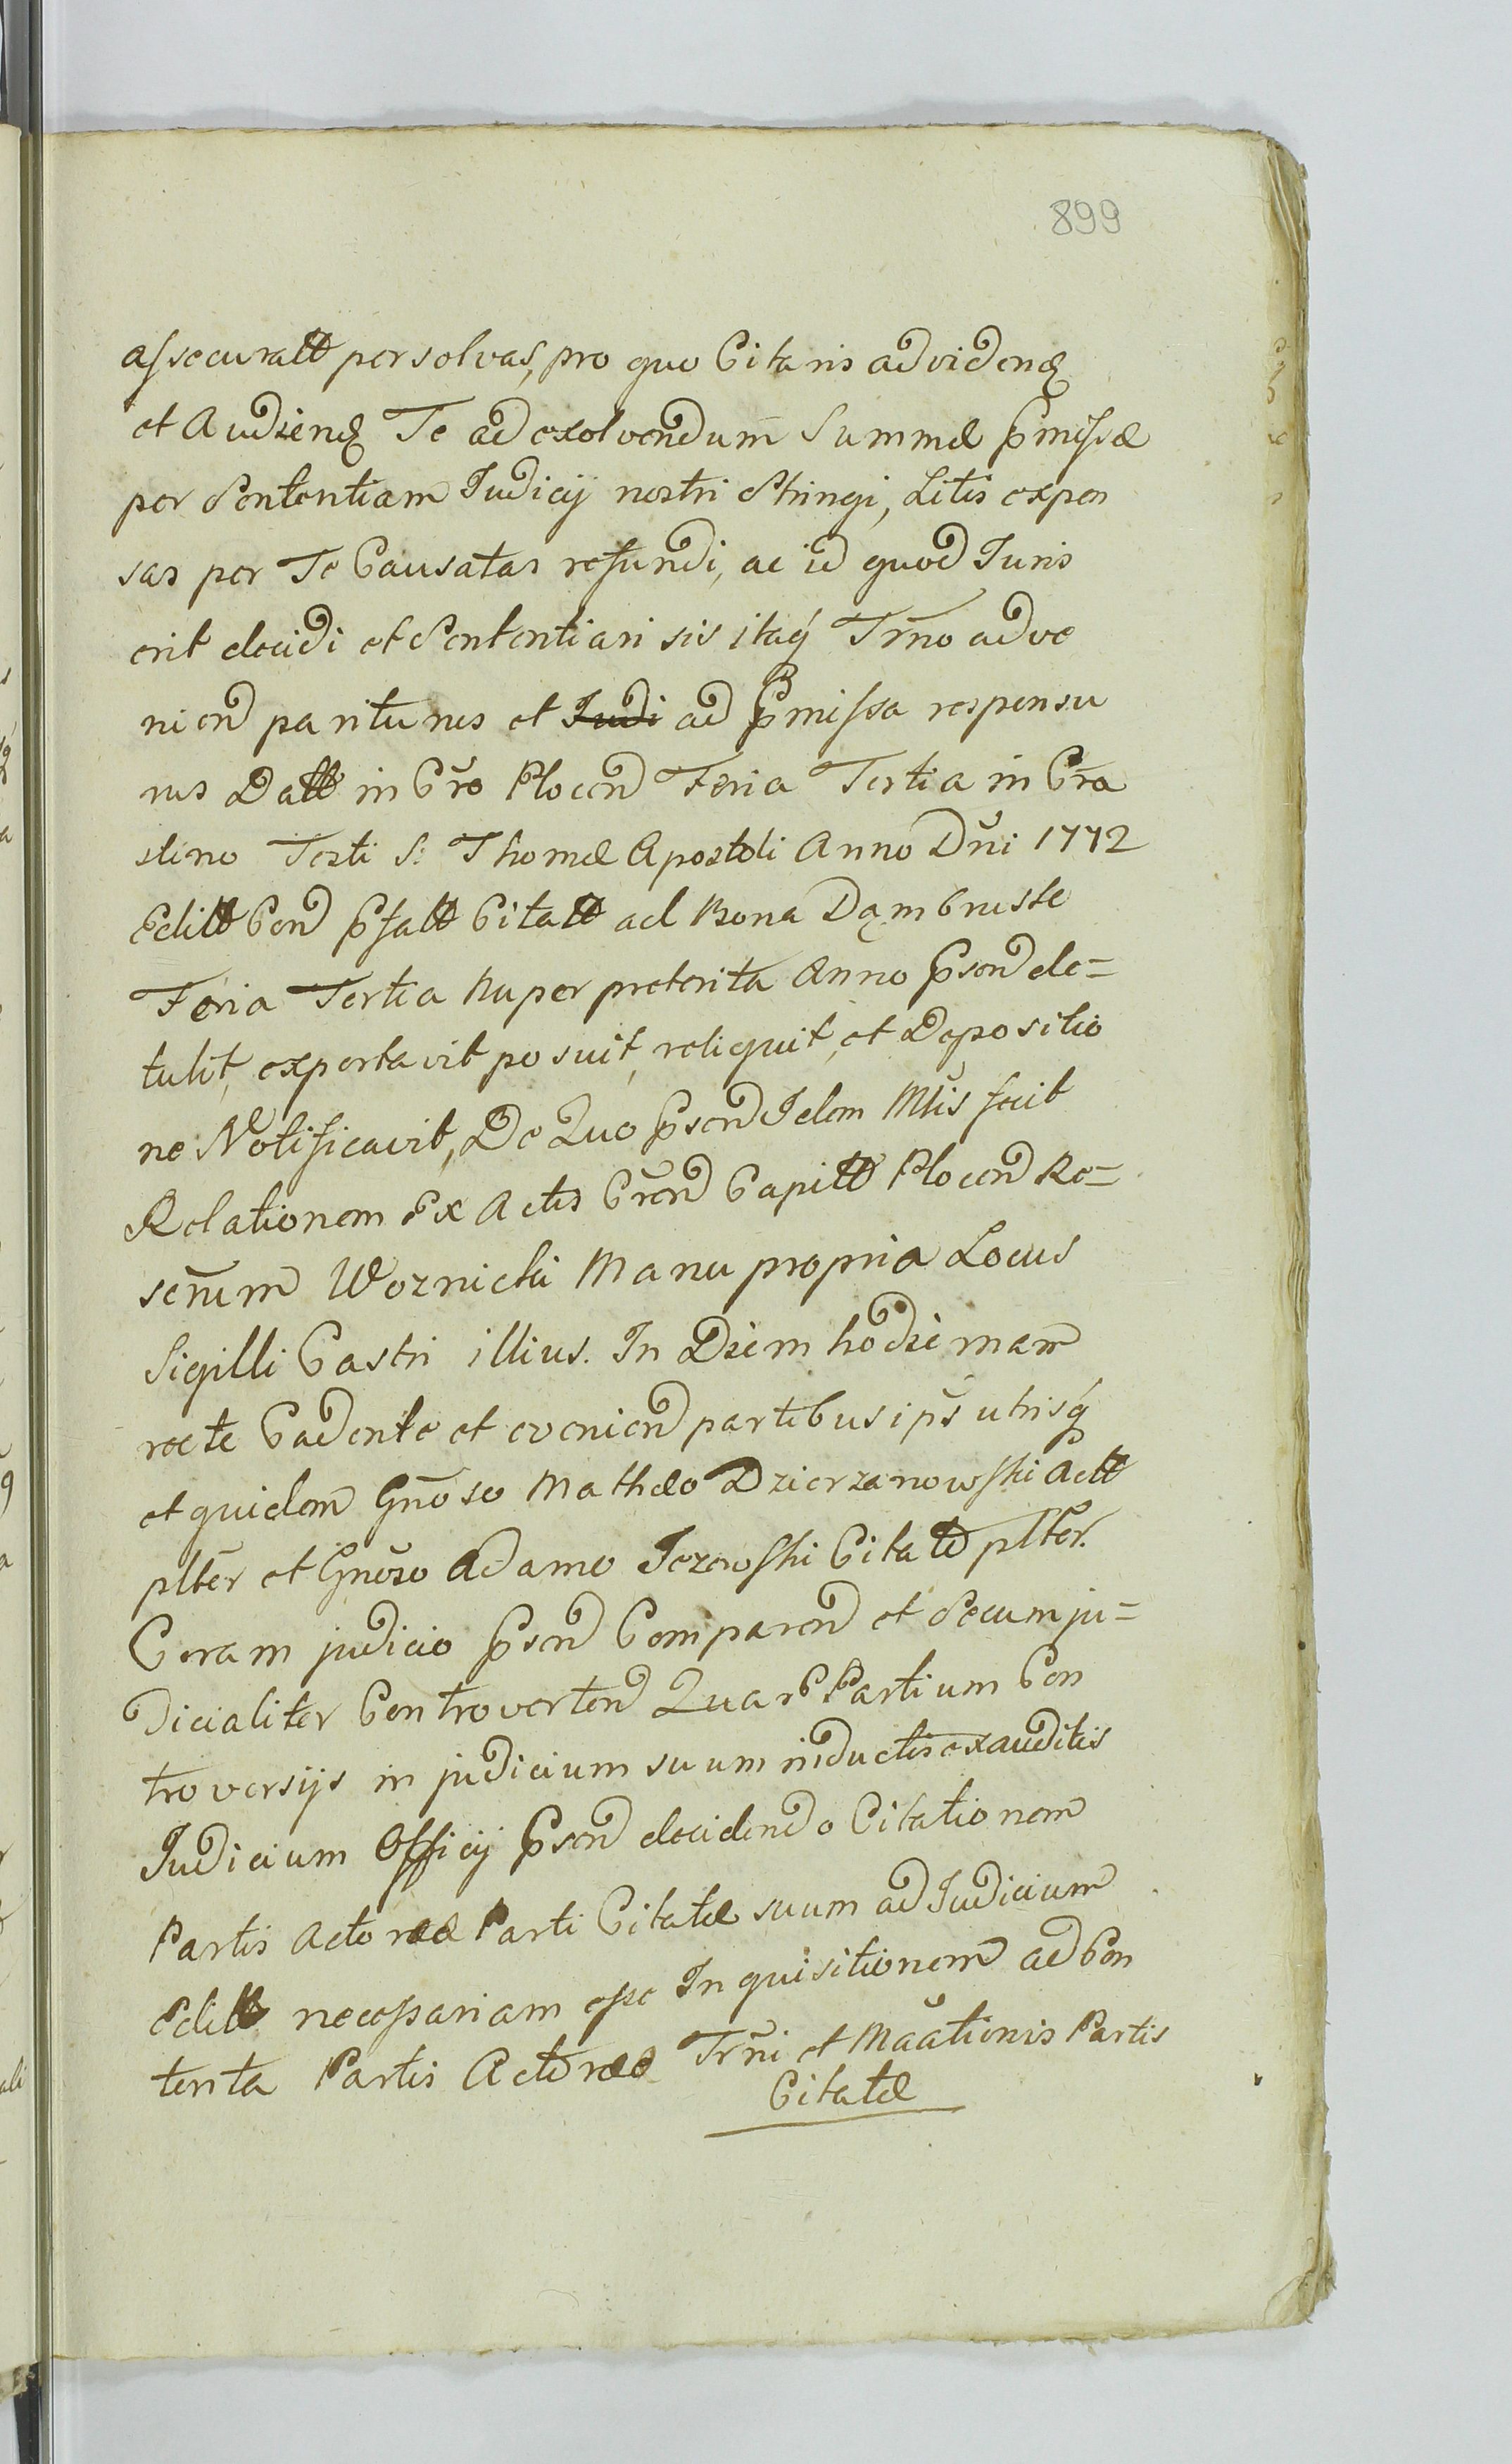 899
assecuratt persolvas, pro quo Citaris ad videnđ
et Audiend Te ad exolvendum Summæ pmissæ
per Sententiam Judicij nostri Stringi, Litis expen
sas per Te Causatas refundi, ac id quod Juris
erit decidi et Sententiari sis itaq Trno adve
niend pariturus et Judi ad Pmissa responsu
rus Datt in Cro Plocen Feria Tertia in Cra
stino Festi S. Thomæ Apostoli Anno Dni 1772
Editt Cen Pfatt Citatt ad Bona Dąmbrusk
Feria Tertia Nuper preterita Anno Psen de=
tulit, exportavit posuit, reliquit, et Depositio
ne Notificavit, De Quo Psen Idem Mtis fecit
Relationem Ex Actis Cren Capitt Plocen Re=
scrum Woznicki Manu propria Locus
Sigilli Castri illius. In Diem hodiernam
recte Cadente et evenien partibus ips utrisq
et quidem Gnoso Mathæo Dzierzanowski Actt
plter et Gnoso Adamo Jezewski Citato plter.
Coram judicio Psen Comparen et Secum ju=
dicialiter Controverten Quar Partium Con
troversijs in judicium suum inductis exauditis
Judicium Officij Psen decidendo Citationem
Partis Actoreæ Parti Citatæ suum ad Judicium
Editt necessariam esse Inquisitionem ad Con
tenta Partis Actoreæ Trni et Maationis Partis
Citatæ